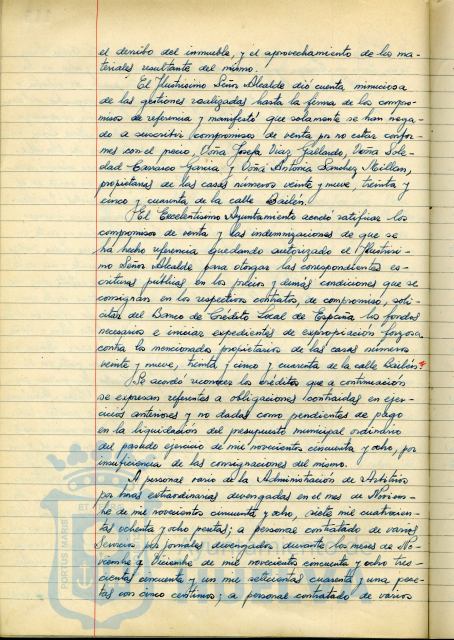 el derribo del inmueble, y el aprovechamiento de los ma-
teriales resultante del mismo.
El Ilustrisimo Señor Alcalde dió cuenta minuciosa
de las gestiones realizadas hasta la firma de los compro-
misos de referencia y manifestó que solamente se han nega-
do a suscribir compromisos de venta por no estar confor-
mes con el precio, Doña Josefa Diaz Gallardo, Doña Sole-
dad Carrasco Garcia y Doña Antonia Sanchez Millan,
propietarias de las casas números veinte y nueve, treinta y
cinco y cuarenta de la calle Bailén.
El Excelentísimo Ayuntamiento acordó ratificar los
compromisos de venta y las indemnizaciones de que se
ha hecho referencia quedando autorizado el Ilustrisi-
mo Señor Alcalde para otorgar las correspondientes es-
crituras públicas en los precios y demás condiciones que se
consignan en los respectivos contratos de compromiso, soli-
citar del Banco de Crédito Local de España los fondos
necesarios e iniciar expedientes de expropiación forzosa
contra los mencionados propietarios de las casas números
veinte y nueve, treinta y cinco y cuarenta de la calle Bailén.
Se acordo reconocer los créditos que a continuación
se expresan referentes a obligaciones contraidas en ejer-
cicios anteriores y no dadas como pendientes de pago
en la liquidación del presupuesto municipal ordinario
del pasado ejercicio de mil novecientos cincuenta y ocho, por
insuficiencia de las consignaciones del mismo.
A personal vario de la Administración de Arbitrios
por horas extraordinarias devengadas en el mes de Noviem-
bre de mil novecientos cincuenta y ocho, siete mil cuatrocien-
tas ochenta y ocho pesetas; a personal contratado de varios
Servicios por jornales devengados durante los meses de No-
viembre a Diciembre de mil novecientos cincuenta y ocho tres-
cientas cincuenta y un mil seiscientas cuarenta y una pese-
tas con cinco centimos; a personal contratado de varios
PORTUS MARIS
ET